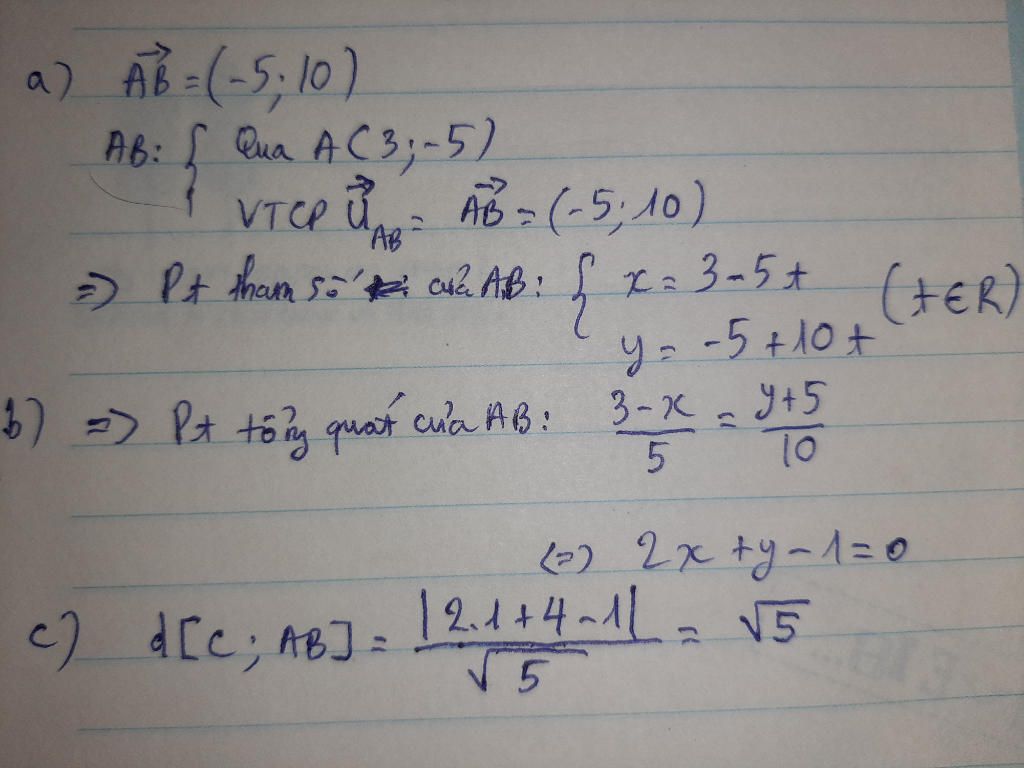 a) $\overrightarrow{AB} = (-5; 10)$
AB: { Qua A(3; -5)
VTCP $\vec{u}_{AB} = \overrightarrow{AB} = (-5; 10)$
=> Pt tham số của AB: { x = 3 - 5t
y = -5 + 10t (t ∈ R)
b) => Pt tổng quát của AB: $\frac{3-x}{5} = \frac{y+5}{10}$
<=> 2x + y - 1 = 0
c) d[C; AB] = $\frac{|2.1+4-1|}{\sqrt{5}} = \sqrt{5}$